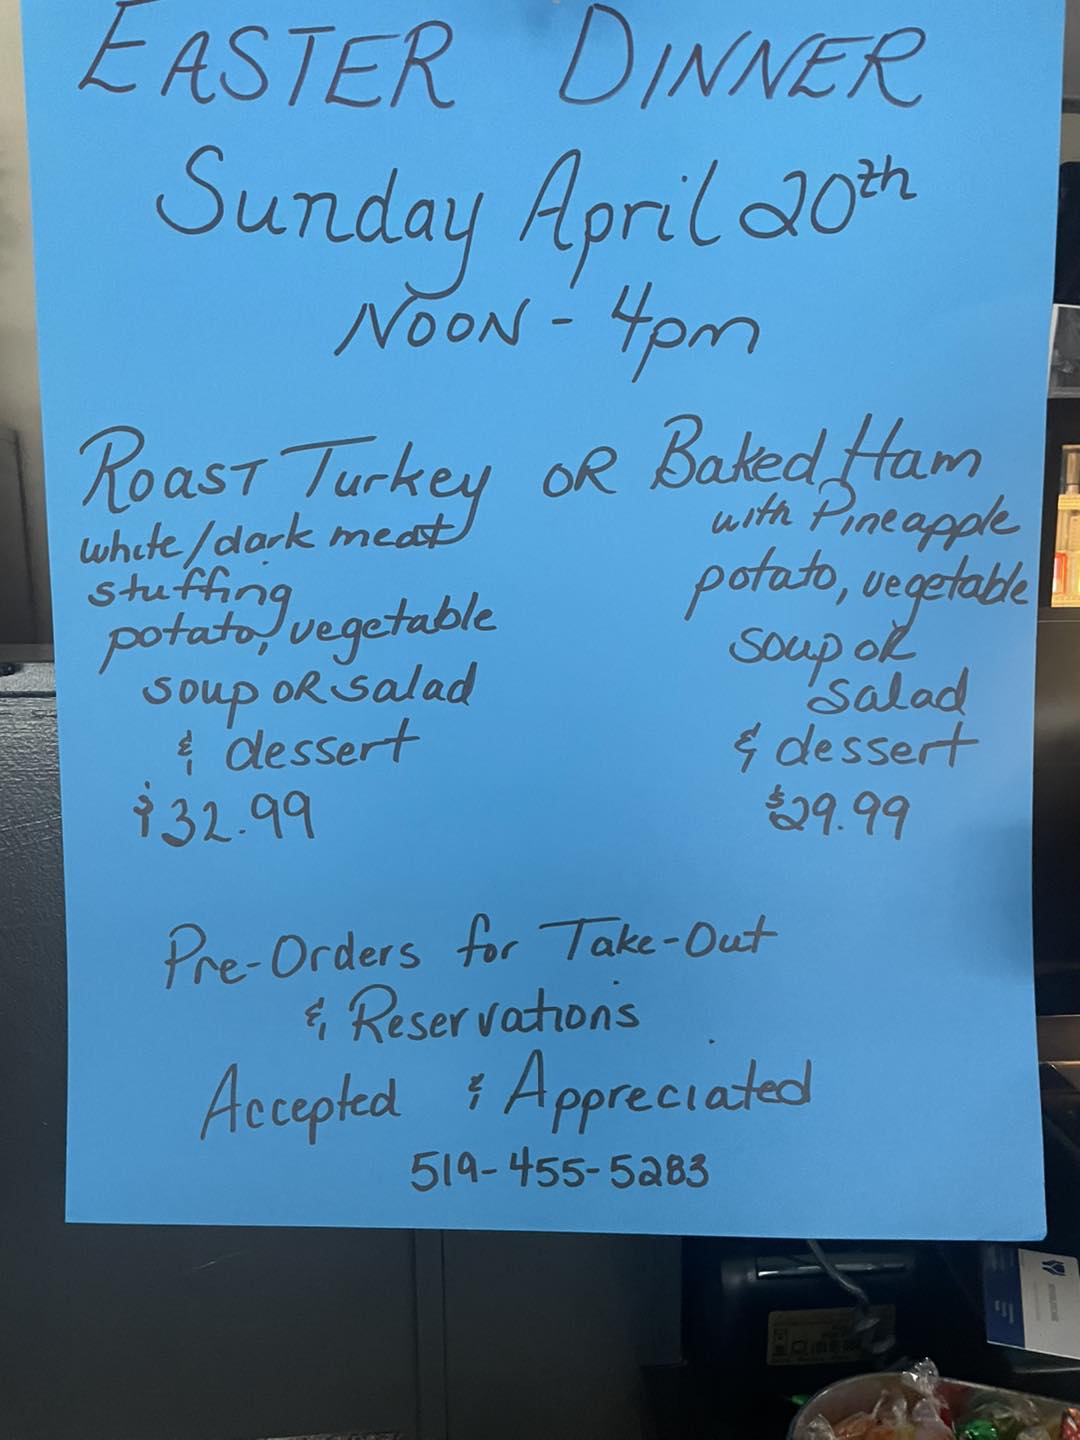 EASTER DINNER
Sunday April 20th
NOON - 4pm
ROAST Turkey OR Baked Ham
white/dark meat
stuffing
potato, vegetable
soup OR salad
& dessert
$32.99
with Pineapple
potato, vegetable
soup OR
salad
& dessert
$29.99
Pre-Orders for Take-Out
& Reservations
Accepted & Appreciated
519-455-5283